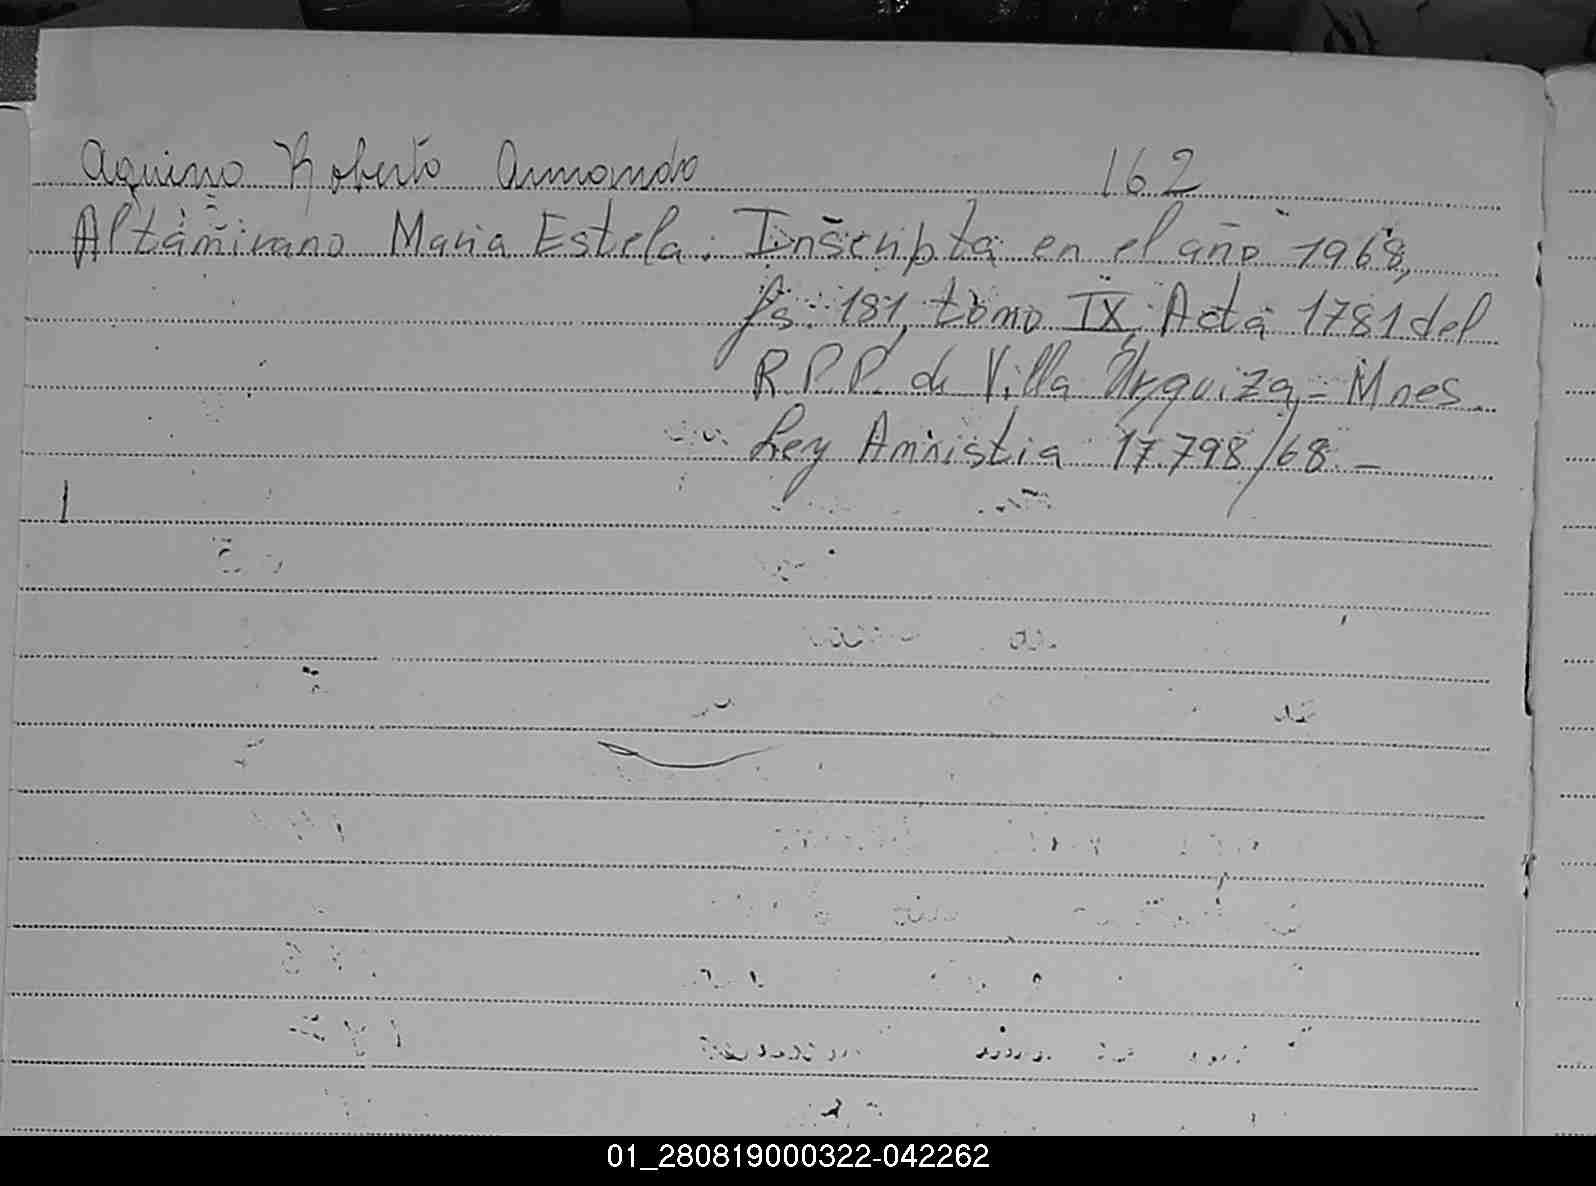 Aquino Roberto Armando 162
Altamirano Maria Estela. Inscripta en el año 1968,
fs. 181, tomo IX, Acta 1781 del
R.P.P. de Villa Urquiza,= Mnes.
Ley Amnistia 17.798/68.-
01_280819000322-042262